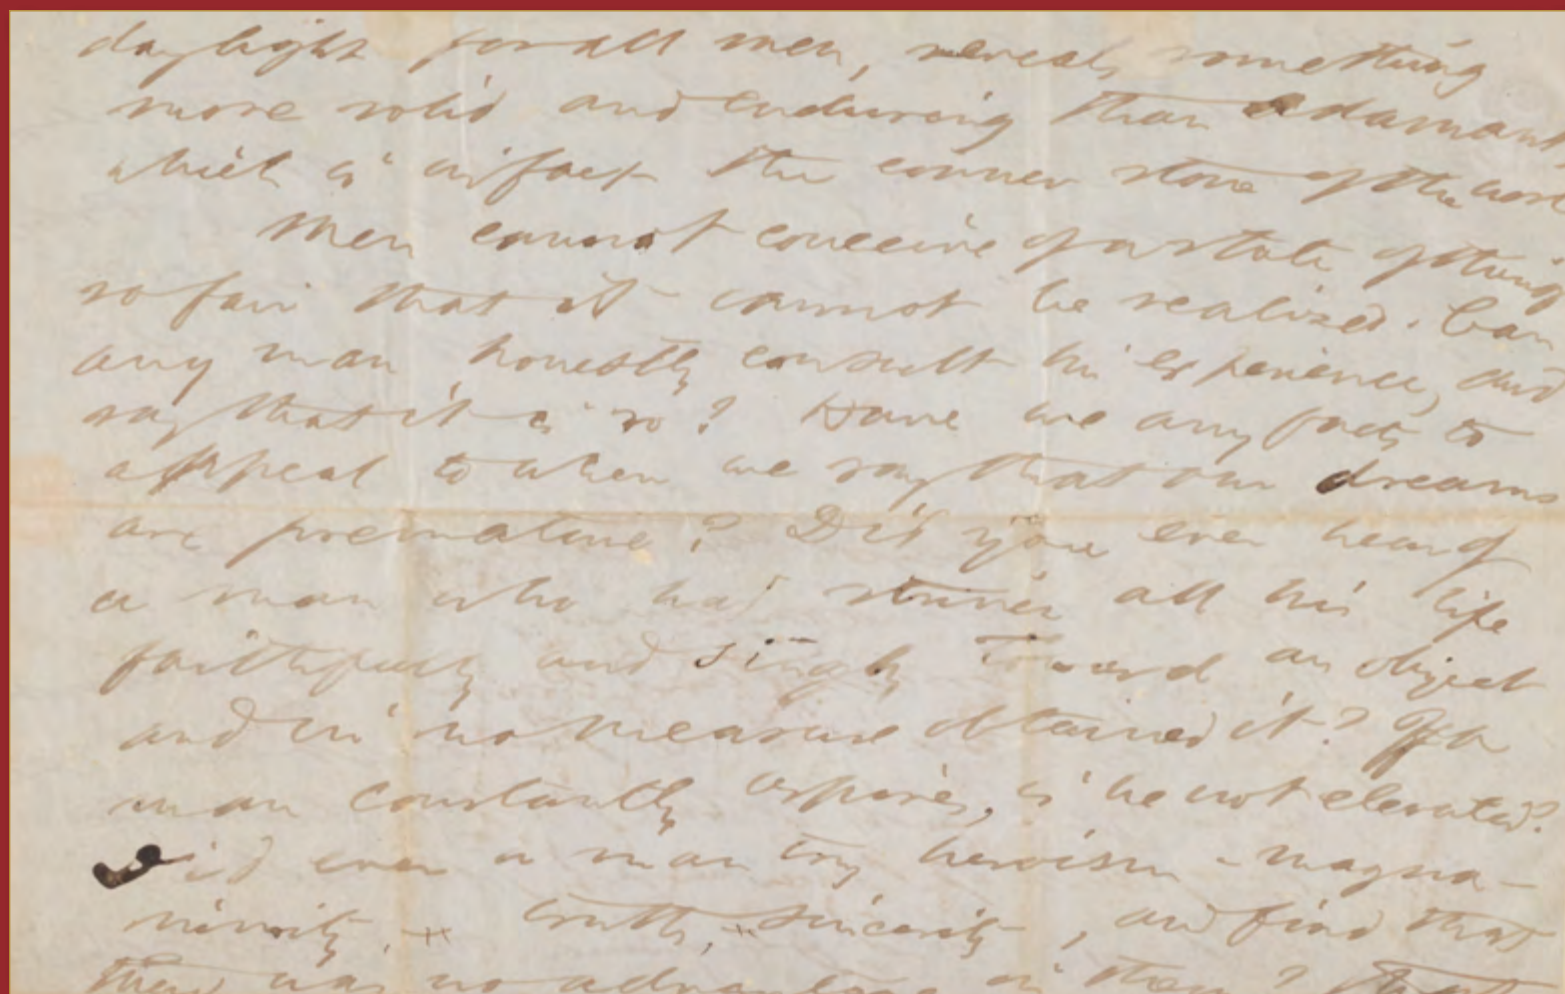 daylight for all men, reveals something
more solid and enduring than adamant,
which is in fact the corner stone of the world
Men cannot conceive of a state of things
so fair that it cannot be realized. Can
any man honestly consult his experience, and
say that it is so? Have we any facts to
appeal to when we say that our dreams
are premature? Did you ever hear of
a man who had striven all his life
faithfully and singly toward an object
and in no measure obtained it? If a
man constantly aspires, is he not elevated?
Did ever a man try heroism - magna-
nimity, + truth, + sincerity, and find that
there was no advantage in them? that